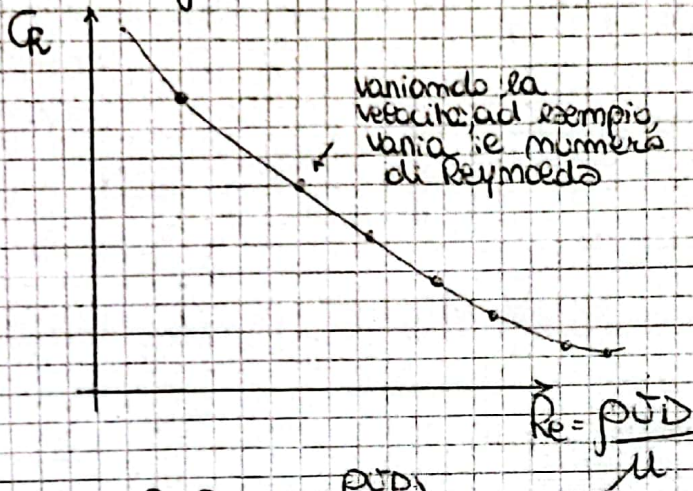 C_R
variando la
velocità, ad esempio,
varia il numero
di Reynolds
Re = ρUD
μ
ρUD